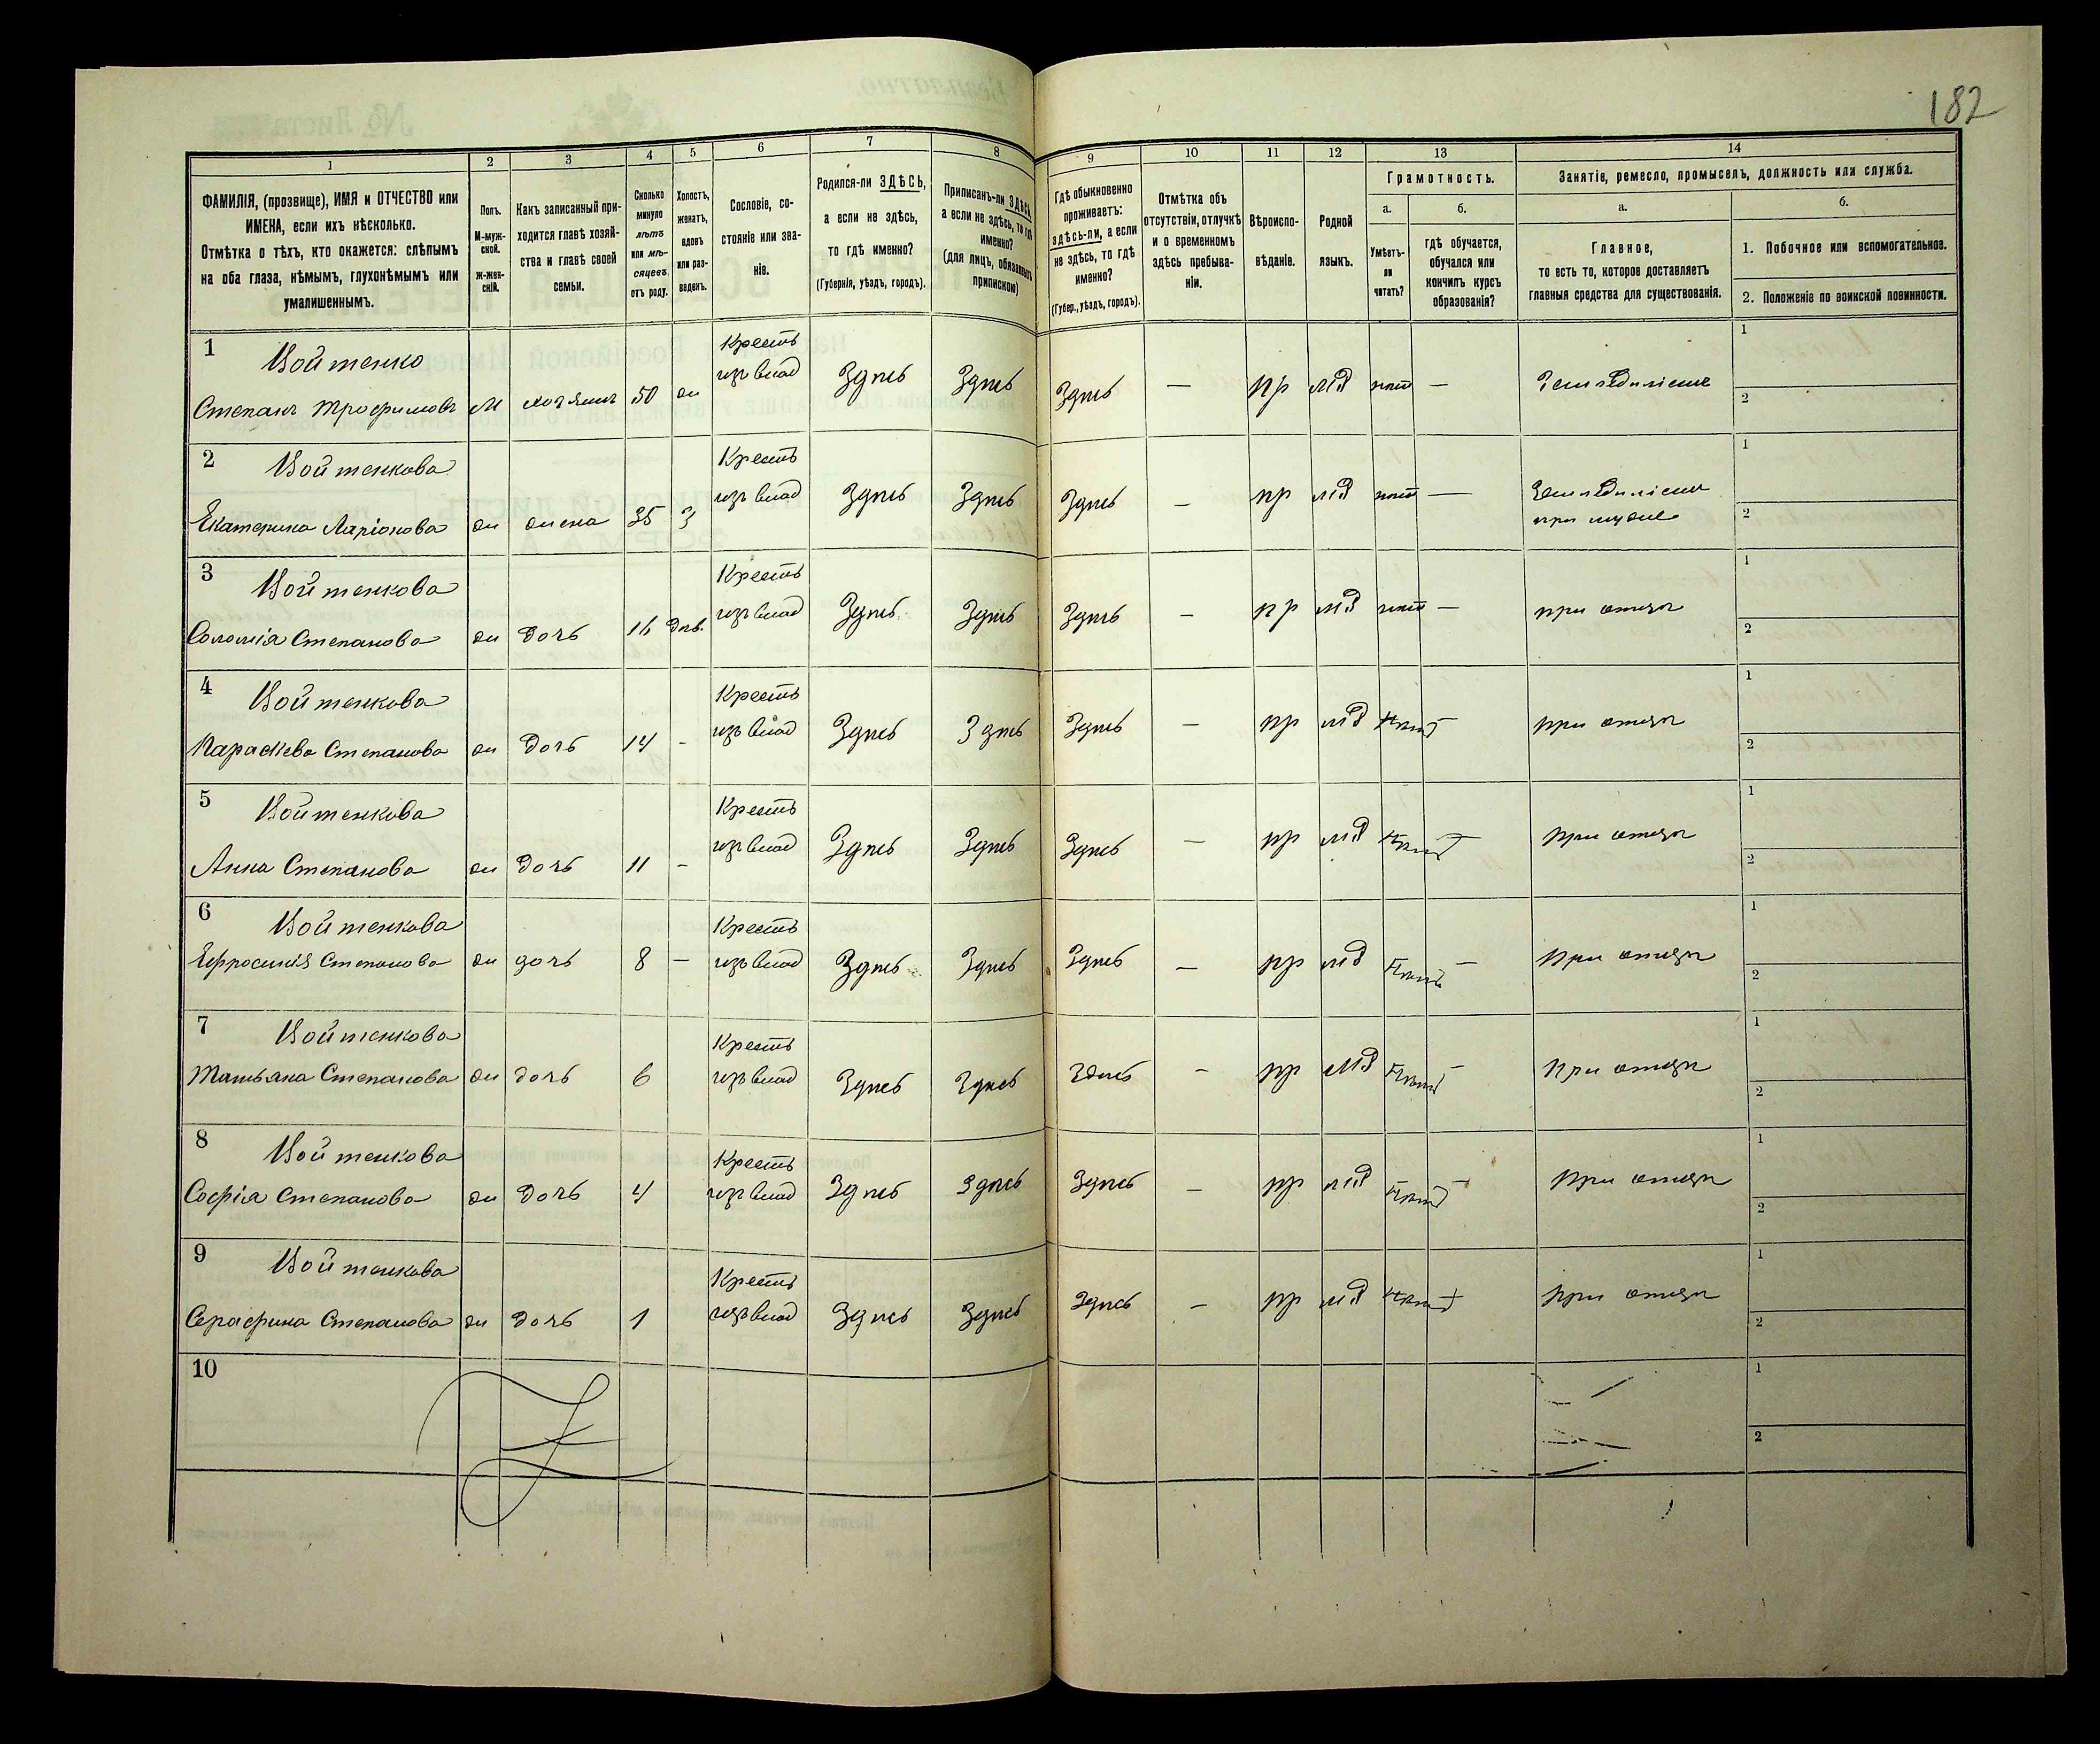 182
1 2 3 4 5 6 7 8 9 10 11 12 13 14
ФАМИЛІЯ, (прозвище), ИМЯ и ОТЧЕСТВО или
ИМЕНА, если ихъ нѣсколько.
Отмѣтка о тѣхъ, кто окажется: слѣпымъ
на оба глаза, нѣмымъ, глухонѣмымъ или
умалишеннымъ.
Полъ.
М-муж-
ской.
Ж-жен-
скій.
Какъ записанный при-
ходится главѣ хозяй-
ства и главѣ своей
семьи.
Сколько
минуло
лѣтъ
или мѣ-
сяцевъ
отъ роду.
Холостъ,
женатъ,
вдовъ
или раз-
веденъ.
Сословіе, со-
стояніе или зва-
ніе.
Родился-ли ЗДѢСЬ,
а если не здѣсь,
то гдѣ именно?
(Губернія, уѣздъ, городъ).
Приписанъ-ли ЗДѢСЬ,
а если не здѣсь, то гдѣ
именно?
(для лицъ, обязанныхъ
припискою)
Гдѣ обыкновенно
проживаетъ:
здѣсь-ли, а если
не здѣсь, то гдѣ
именно?
(Губер., уѣздъ, городъ).
Отмѣтка объ
отсутствіи, отлучкѣ
и о временномъ
здѣсь пребыва-
ніи.
Вѣроиспо-
вѣданіе.
Родной
языкъ.
Грамотность.
а.
Умѣетъ-
ли
читать?
б.
гдѣ обучается,
обучался или
кончилъ курсъ
образованія?
Занятіе, ремесло, промыселъ, должность или служба.
а.
Главное,
то есть то, которое доставляетъ
главныя средства для существованія.
б.
1. Побочное или вспомогательное.
2. Положеніе по воинской повинности.
1 Войтенко Кресть 1
Степанъ Трофимовъ М хозяинъ 50 ж изъ влад Здѣсь Здѣсь Здѣсь — пр мд нѣт — Земледѣліе 2
2 Войтенкова Кресть 1
Екатерина Ларіонова ж жена 35 З изъ влад Здѣсь Здѣсь Здѣсь — пр мд нѣт — Земледѣліе
при мужѣ 2
3 Войтенкова Кресть 1
Соломія Степанова ж дочь 16 Дѣв. изъ влад Здѣсь Здѣсь Здѣсь — пр мд нѣт — при отцѣ 2
4 Войтенкова Кресть 1
Параскева Степанова ж дочь 14 - изъ влад Здѣсь Здѣсь Здѣсь — пр мд нѣт — при отцѣ 2
5 Войтенкова Кресть 1
Анна Степанова ж дочь 11 - изъ влад Здѣсь Здѣсь Здѣсь — пр мд нѣт — при отцѣ 2
6 Войтенкова Кресть 1
Ефросинія Степанова ж дочь 8 — изъ влад Здѣсь Здѣсь Здѣсь — пр мд нѣт — при отцѣ 2
7 Войтенкова Кресть 1
Татьяна Степанова ж дочь 6 изъ влад Здѣсь Здѣсь Здѣсь - пр мд нѣт — при отцѣ 2
8 Войтенкова Кресть 1
Софія Степанова ж дочь 4 изъ влад Здѣсь Здѣсь Здѣсь — пр мд нѣт — при отцѣ 2
9 Войтенкова Кресть 1
Серафима Степанова ж дочь 1 изъ влад Здѣсь Здѣсь Здѣсь — пр мд нѣт — при отцѣ 2
10 1
2